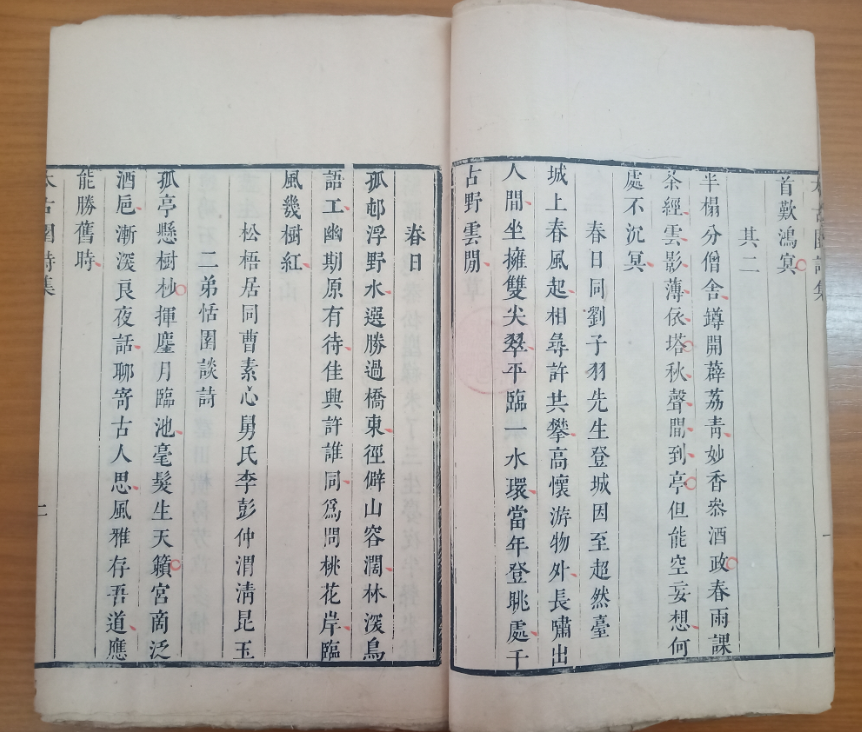 首歎鴻冥
其二
半榻分僧舍罇開薜荔青妙香叅酒政春雨課
茶經雲影薄依塔秋聲閒到亭但能空妄想何
處不沉冥
春日同劉子羽先生登城因至超然臺
城上春風起相尋許共攀高懷游物外長嘯出
人間坐擁雙尖翠平臨一水環當年登眺處千
古野雲閒
春日
孤邨浮野水選勝過橋東徑僻山容濶林深鳥
語工幽期原有待佳興許誰同爲問桃花岸臨
風幾樹紅
松梧居同曹素心舅氏李彭仲渭淸昆玉
二弟恬園談詩
孤亭懸樹杪揮麈月臨池毫髮生天籟宮商泛
酒巵漸深良夜話聊寄古人思風雅存吾道應
能勝舊時
太古園詩集
二